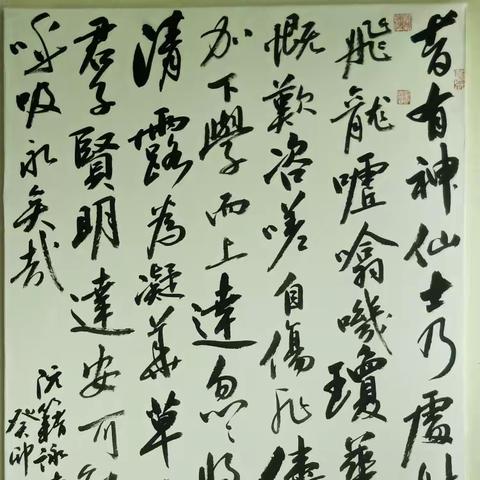 昔有神仙士乃處
飛龍噓噏嘰瓊華
慨歎咨嗟自傷非儔
加下學而上達忽〻將
清露為凝華草
君子賢明達安可
呼吸永矣哉
阮籍詠
癸卯